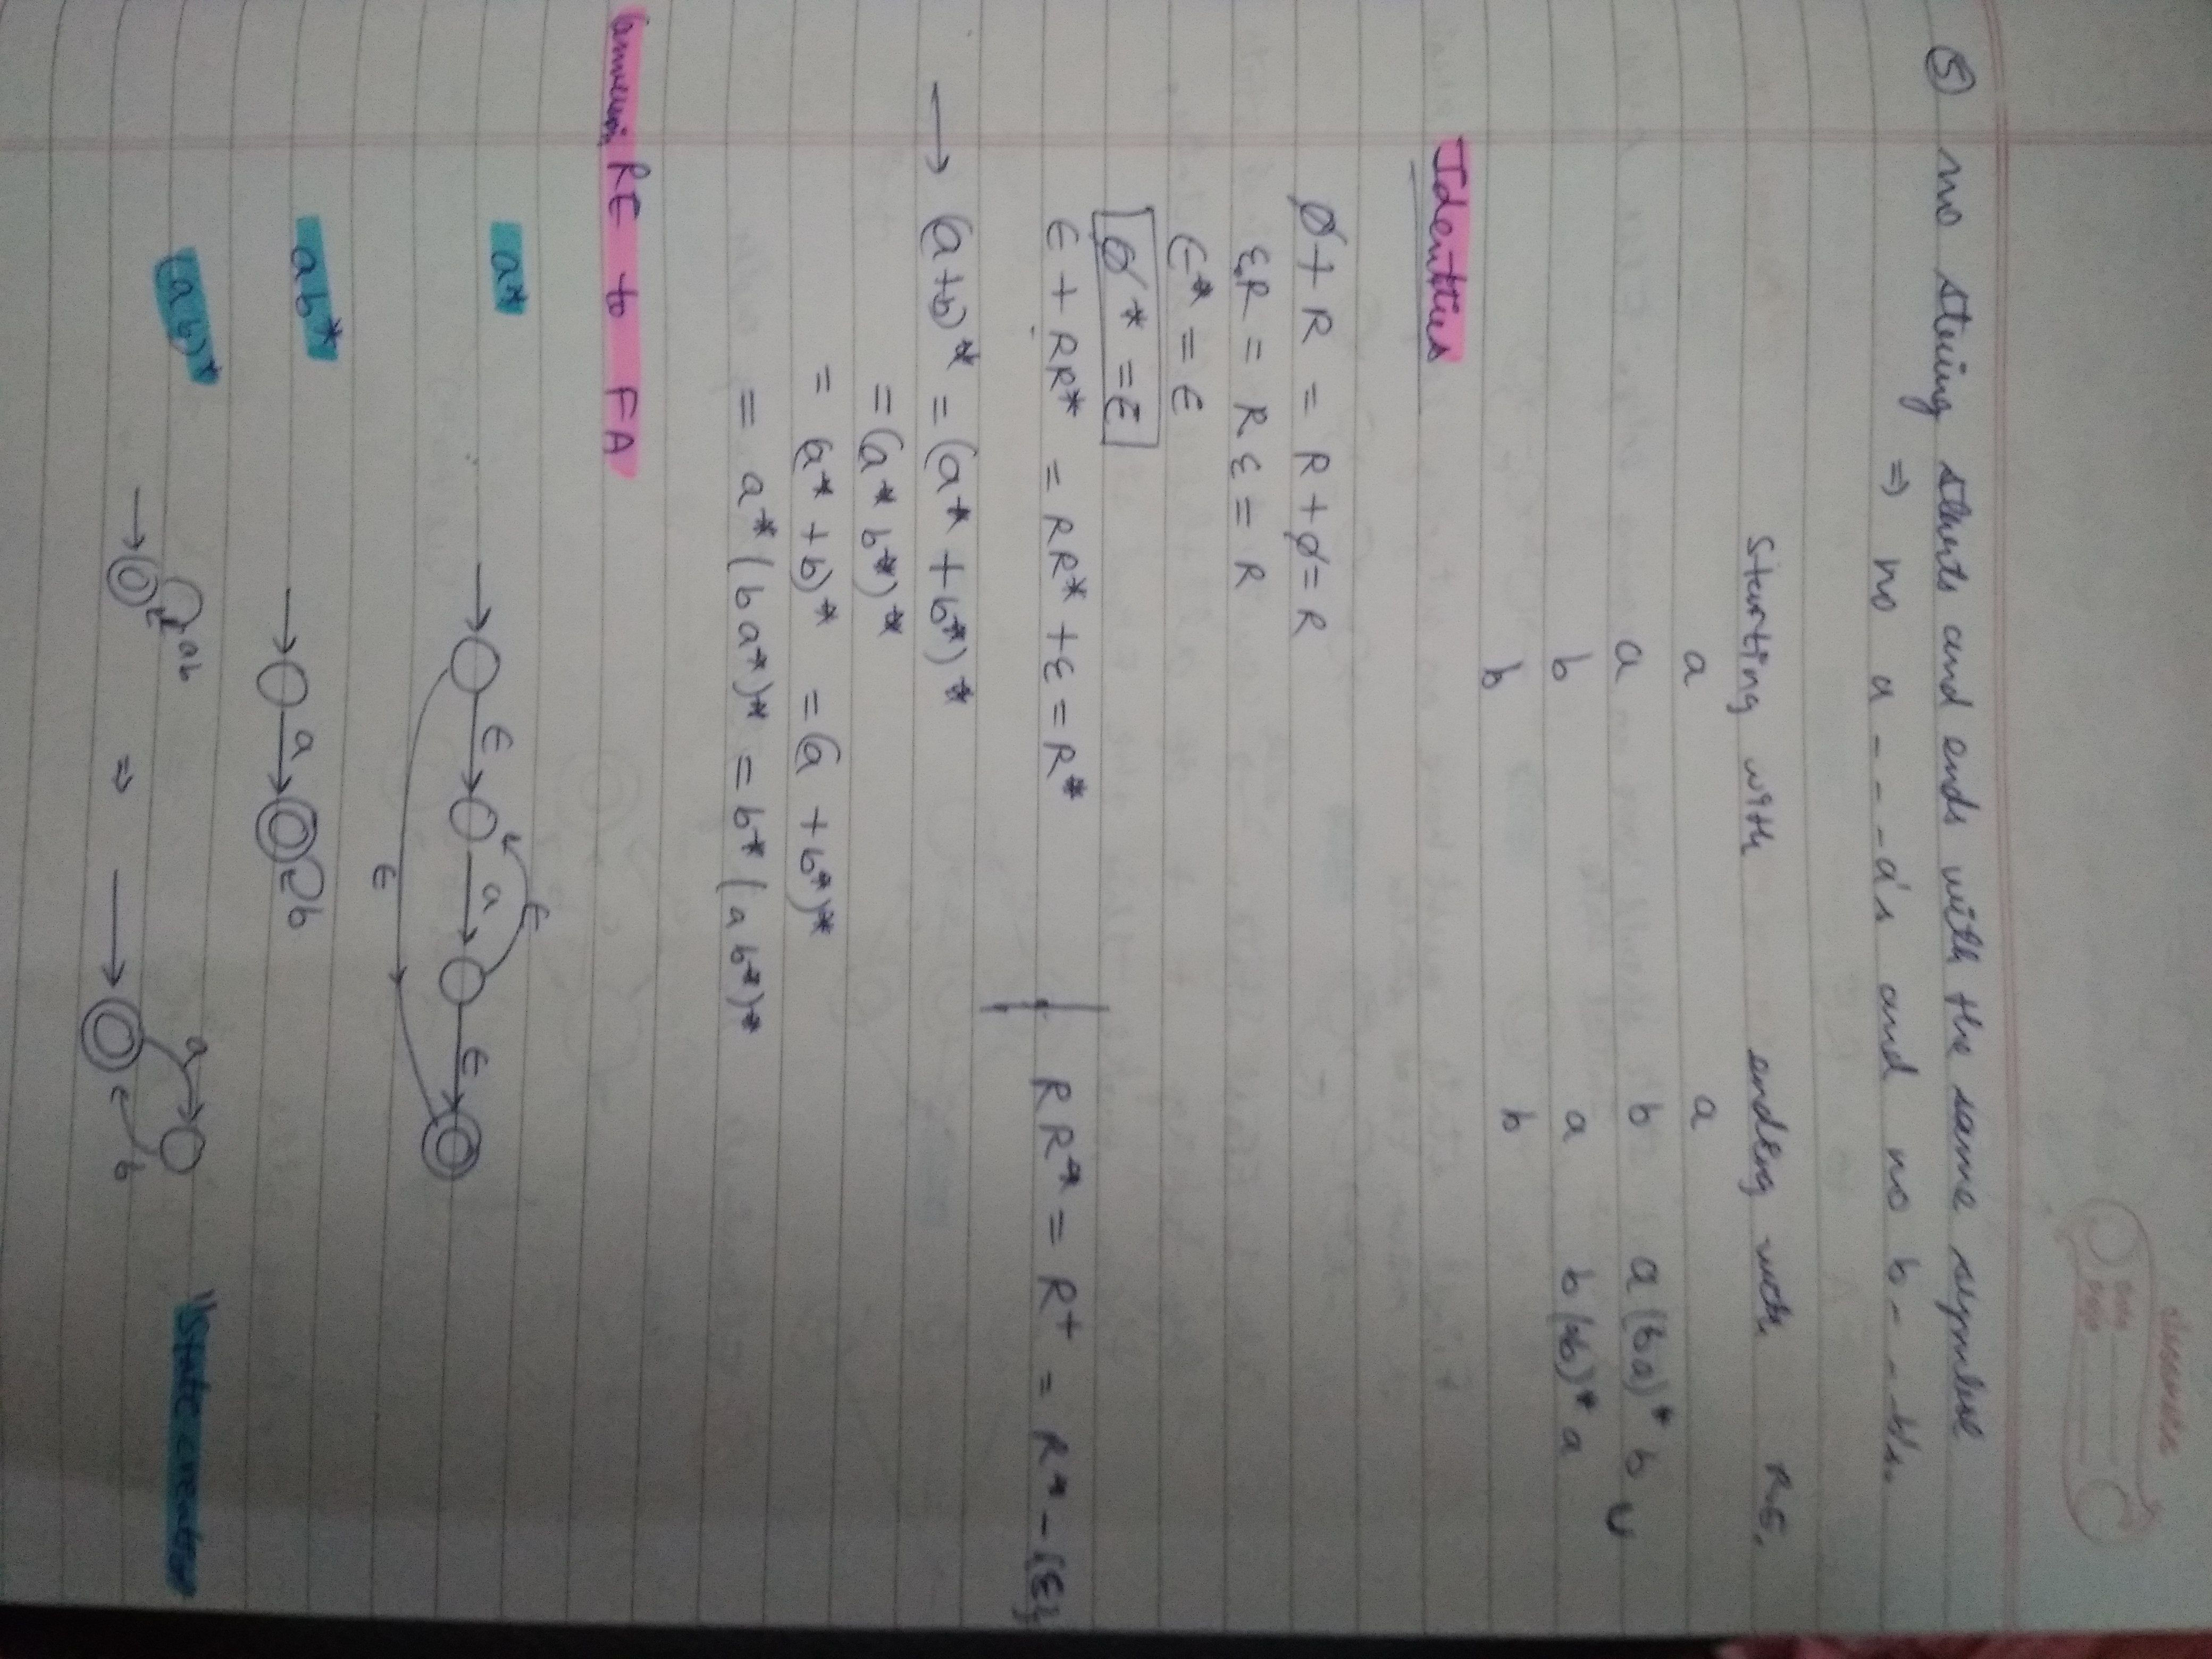 ⑤ no string starts and ends with the same symbol
⇒ no a - - - a's and no b - - - b's.
Starting with ending with R.E.
a a
a b a (ba)* b ∪
b a b (ab)* a
b b
Identities
∅ + R = R + ∅ = R
εR = Rε = R
ε* = ε
∅* = ε
ε + RR* = RR* + ε = R* RR* = R+ = R* - {ε}
→ (a+b)* = (a* + b*)*
= (a* b*)*
= (a* + b)* = (a + b*)*
= a* (ba*)* = b* (ab*)*
RE to FA
a* ε a ε ε ε
ab* a b
(ab)* ab ⇒ a b "State creates